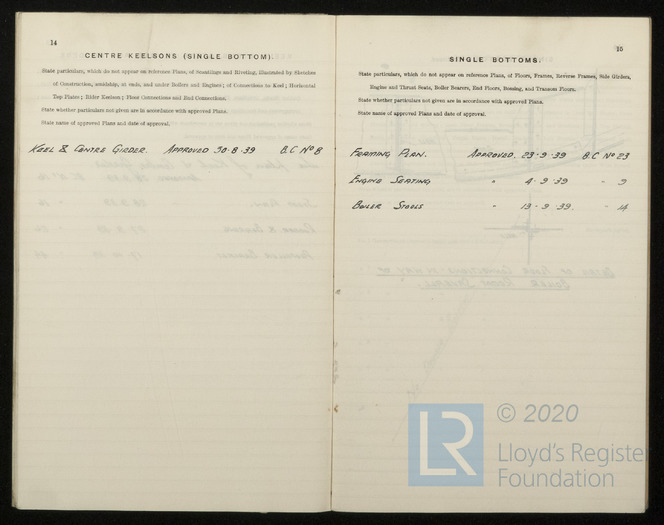 14
CENTRE KEELSONS (SINGLE BOTTOM).
State particulars, which do not appear on reference Plans, of Scantlings and Riveting, illustrated by Sketches
of Construction, amidship, at ends, and under Boilers and Engines; of Connections to Keel; Horizontal
Top Plates; Rider Keelson; Floor Connections and End Connections.
State whether particulars not given are in accordance with approved Plans.
State name of approved Plans and date of approval.
KEEL & CENTRE GIRDER. APPROVED 30.8.39 B.C Nº 8
15
SINGLE BOTTOMS.
State particulars, which do not appear on reference Plans, of Floors, Frames, Reverse Frames, Side Girders,
Engine and Thrust Seats, Boiler Bearers, End Floors, Bossing, and Transom Floors.
State whether particulars not given are in accordance with approved Plans.
State name of approved Plans and date of approval.
FRAMING PLAN. APPROVED. 29.9.39 B.C Nº 23
ENGINE SEATING " 4.9.39 - 9
BOILER STOOLS " 19.9.39. - 14
LR
© 2020
Lloyd's Register
Foundation